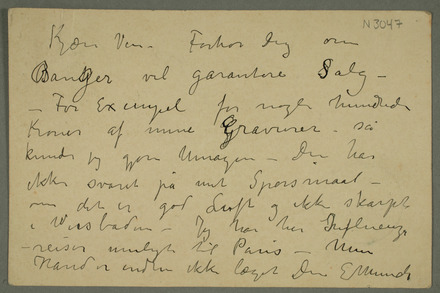 N 3047
Kjære Ven – Forhør Dig om
Banger vil garantere Salg –
– For Exempel for nogle hundrede
Kroner af mine Gravurer – så
kunde jeg gjøre Umagen – Du har
ikke svaret på mit Spørsmaal –
om det er god Luft og ikke skarpt
i Wiesbaden – Jeg har her Influenza
– reiser muligt til Paris – Min
Haand er endnu ikke læget Din E Munch